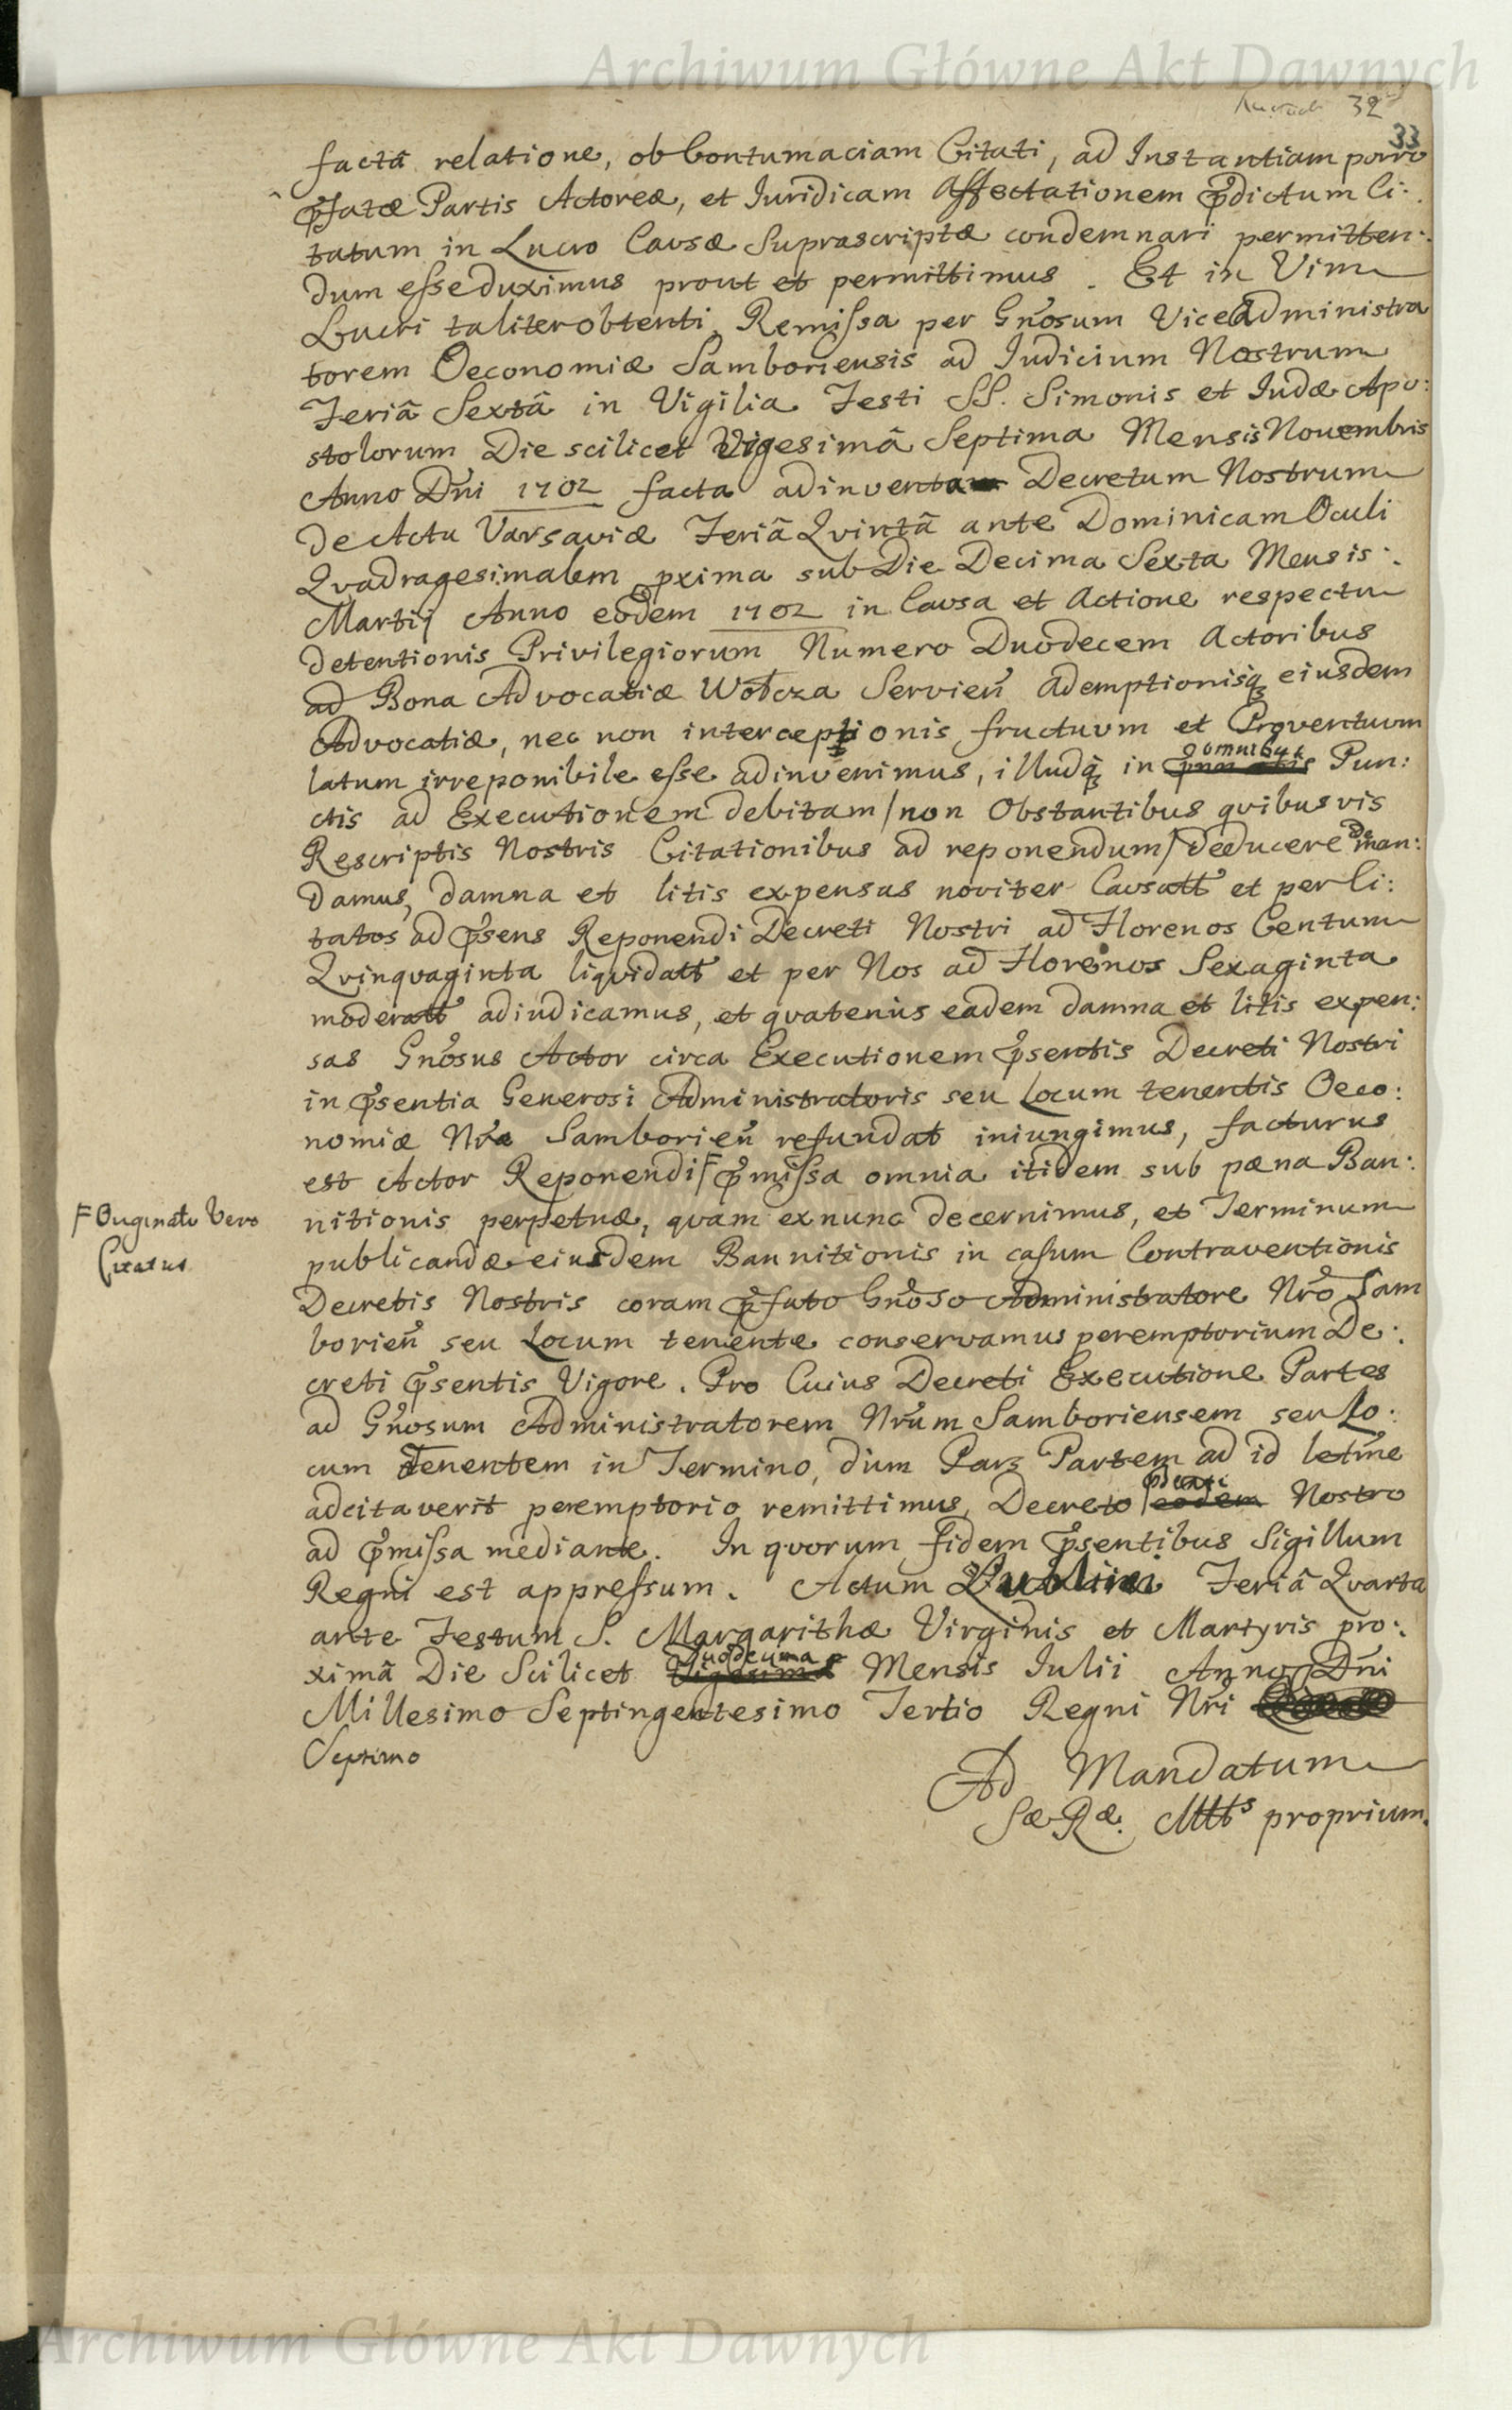 Archiwum Główne Akt Dawnych
32
33
factâ relatione, ob Contumaciam Citati, ad Instantiam porro
p̃fatæ Partis Actoreæ, et Iuridicam Affectationem p̃dictum Ci:
tatum in Lucro Causæ Suprascriptæ condemnari permitten:
dum esse duximus prout et permittimus. Et in Vim
Lucri taliter obtenti, Remissa per Gn̄osum ViceAdministra
torem Oeconomiæ Samboriensis ad Iudicium Nostrum
Feriâ Sextâ in Vigilia Festi SS. Simonis et Iudæ Apo:
stolorum Die scilicet Vigesimâ Septima Mensis Novembris
Anno Dn̄i 1702 facta adinventa Decretum Nostrum
de Actu Varsaviæ Feriâ Qvintâ ante Dominicam Oculi
Qvadragesimalem pxima sub Die Decima Sexta Mensis
Martij Anno eodem 1702 in Causa et Actione respectu
detentionis Privilegiorum Numero Duodecem Actoribus
ad Bona Advocatiæ Wołcza Servien̄ ademptionisq̨ eiusdem
Advocatiæ, nec non interceptionis fructuum et Proventuum
latum irreponibile esse adinvenimus, illudq̨ in omnibus Pun:
ctis ad Executionem debitam /non Obstantibus qvibusvis
Rescriptis Nostris Citationibus ad reponendum/ deducere de man:
damus, damna et litis expensas noviter Causatt et per Ci:
tatos ad p̃sens Reponendi Decreti Nostri ad Florenos Centum
Qvinqvaginta liqvidatt et per Nos ad Florenos Sexaginta
moderatt adiudicamus, et qvatenus eadem damna et litis expen:
sas Gn̄osus Actor circa Executionem p̃sentis Decreti Nostri
in p̃sentia Generosi Administratoris seu Locum tenentis Oeco:
nomiæ Nr̄æ Samborien̄ refundat iniungimus, facturus
est Actor Reponendi F p̃missa omnia itidem sub pæna Ban:
F Originalis Vero
Citatus
nitionis perpetuæ, qvam ex nunc decernimus, et Terminum
publicandæ eiusdem Bannitionis in casum Contraventionis
Decretis Nostris coram p̃fato Gn̄oso Administratore Nr̄o Sam
borien̄ seu Locum tenente conservamus peremptorium De:
creti p̃sentis Vigore. Pro Cuius Decreti Executione Partes
ad Gn̄osum Administratorem Nr̄um Samboriensem seu Lo:
cum Tenentem in Termino, dum Pars Partem ad id letm̄e
adcitaverit peremptorio remittimus, Decreto Nostro
ad p̃missa mediante. In qvorum fidem p̃sentibus Sigillum
Regni est appressum. Actum Lublini Feriâ Qvarta
ante Festum S. Margarithæ Virginis et Martyris pro:
ximâ Die Scilicet Duodecima Mensis Iulii Anno Dn̄i
Millesimo Septingentesimo Tertio Regni Nr̄i
Septimo
Ad Mandatum
Sæ Ræ. Mtts proprium.
Archiwum Główne Akt Dawnych